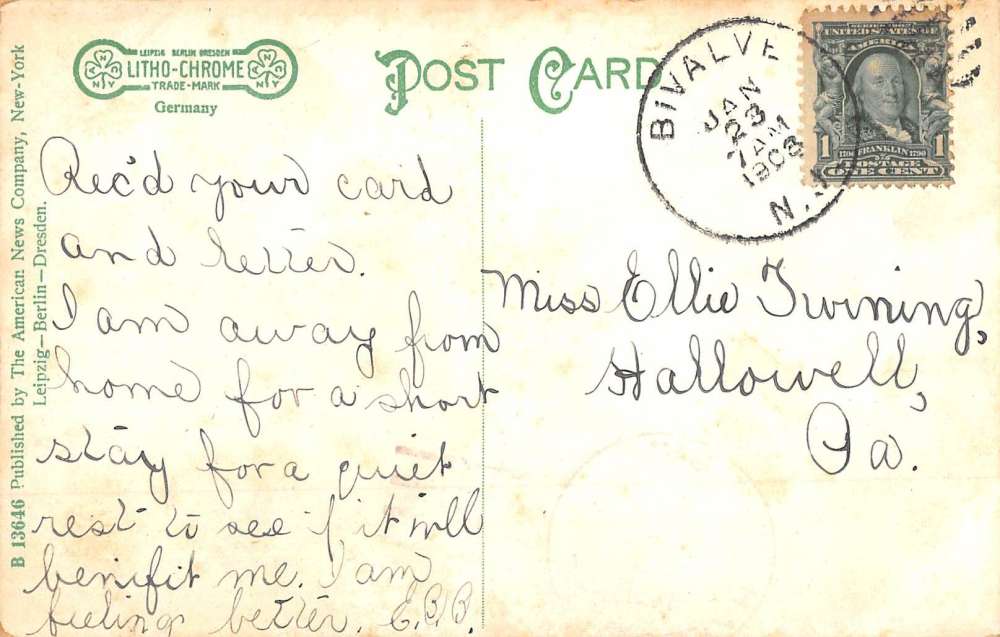 LEIPZIG BERLIN DRESDEN
LITHO-CHROME
TRADE-MARK
Germany
A N C
N Y
A N C
N Y
POST CARD
BIVALVE
JAN
28
7 AM
1908
N.J.
SERIES 1902
UNITED STATES OF
AMERICA
1 1
1706 FRANKLIN 1790
POSTAGE
ONE CENT
B 13646 Published by The American News Company, New-York
Leipzig—Berlin—Dresden.
Rec'd your card
and letter.
I am away from
home for a short
stay for a quiet
rest to see if it will
benifit me. I am
feeling better. E.B.B.
Miss Ellie Twining,
Hallowell,
Pa.